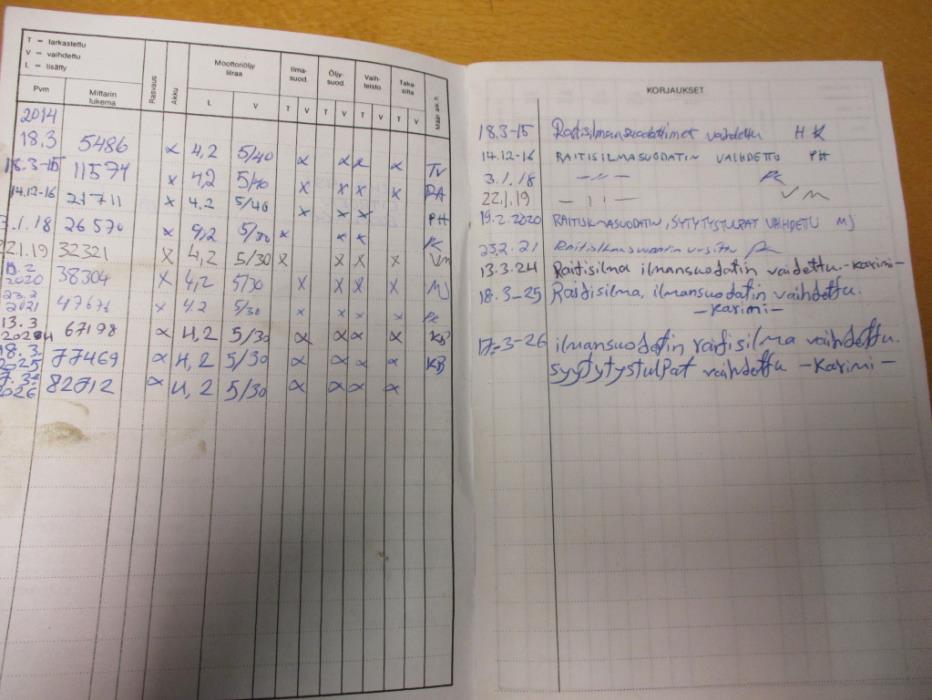 T = tarkastettu
V = vaihdettu
L = lisätty
Pvm
Mittarin lukema
Rasvaus
Akku
Moottoriöljy litraa
Ilma- suod.
Öljy- suod.
Vaih- teisto
Taka- silta
L V T V T V T V T V
2014
18.3 5486 α 4,2 5/40 α α α α TV
18.3-15 11574 x 4,2 5/40 x x x x
14.12-16 21711 x 4.2 5/40 x x x PH
3.1.18 26570 x 4,2 5/30 x x x
22.1.19 32321 X 4,2 5/30 X X X X Vm
2020 38304 X 4,2 5/30 X X X X MJ
2021 x 4.2 5/30 x x x x
13.3 67198 α 4,2 5/30 α α α α KB
18.3 2025 77469 α 4,2 5/30 α α α α KB
82712 α 4,2 5/30 α α α α
KORJAUKSET
18.3-15 vaihdettu
14.12-16 RAITISILMASUODATIN VAIHDETTU PH
3.1.18 -〃-
22.1.19 -〃- Vm
19.2.2020 VAIHDETU MJ
13.3.24 Raitisilma ilmansuodatin vaidettu.-karimi-
18.3-25 Raidisilma, ilmansuodatin vaihdettu.
-karimi-
17.-3-26 ilmansuodatin raitisilma vaihdettu.
syytytystulpat vaihdettu -Karimi-